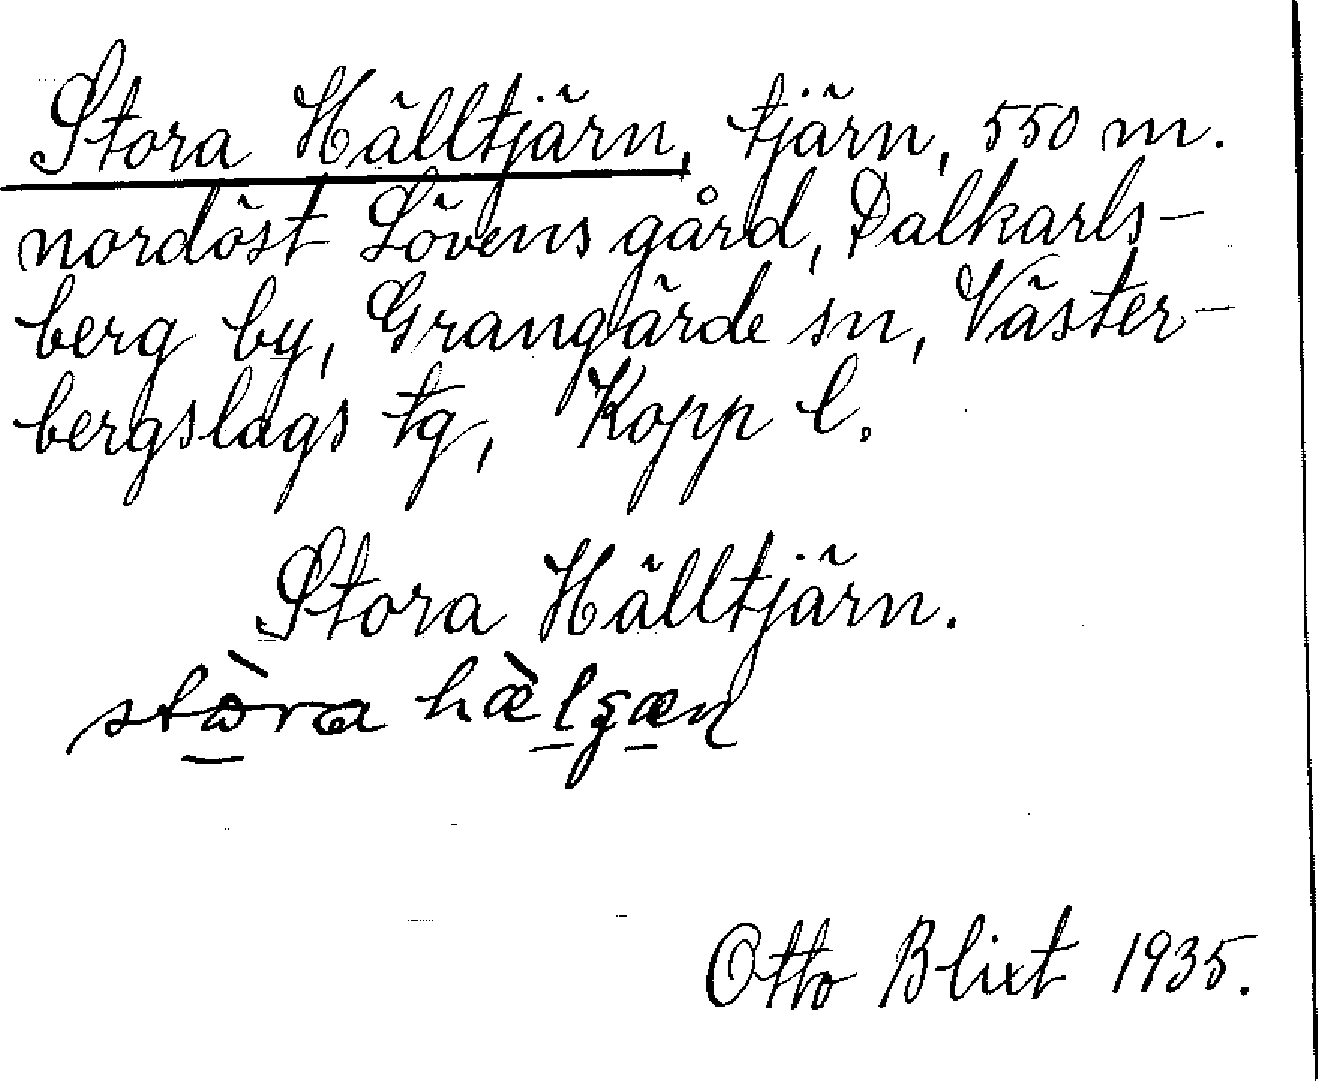 Stora Hälltjärn, tjärn, 550 m.
nordöst Lövens gård, Dalkarls-
berg by, Grangärde sn, Väster-
bergslags tg, Kopp l.
Stora Hälltjärn.
Otto Blixt 1935.